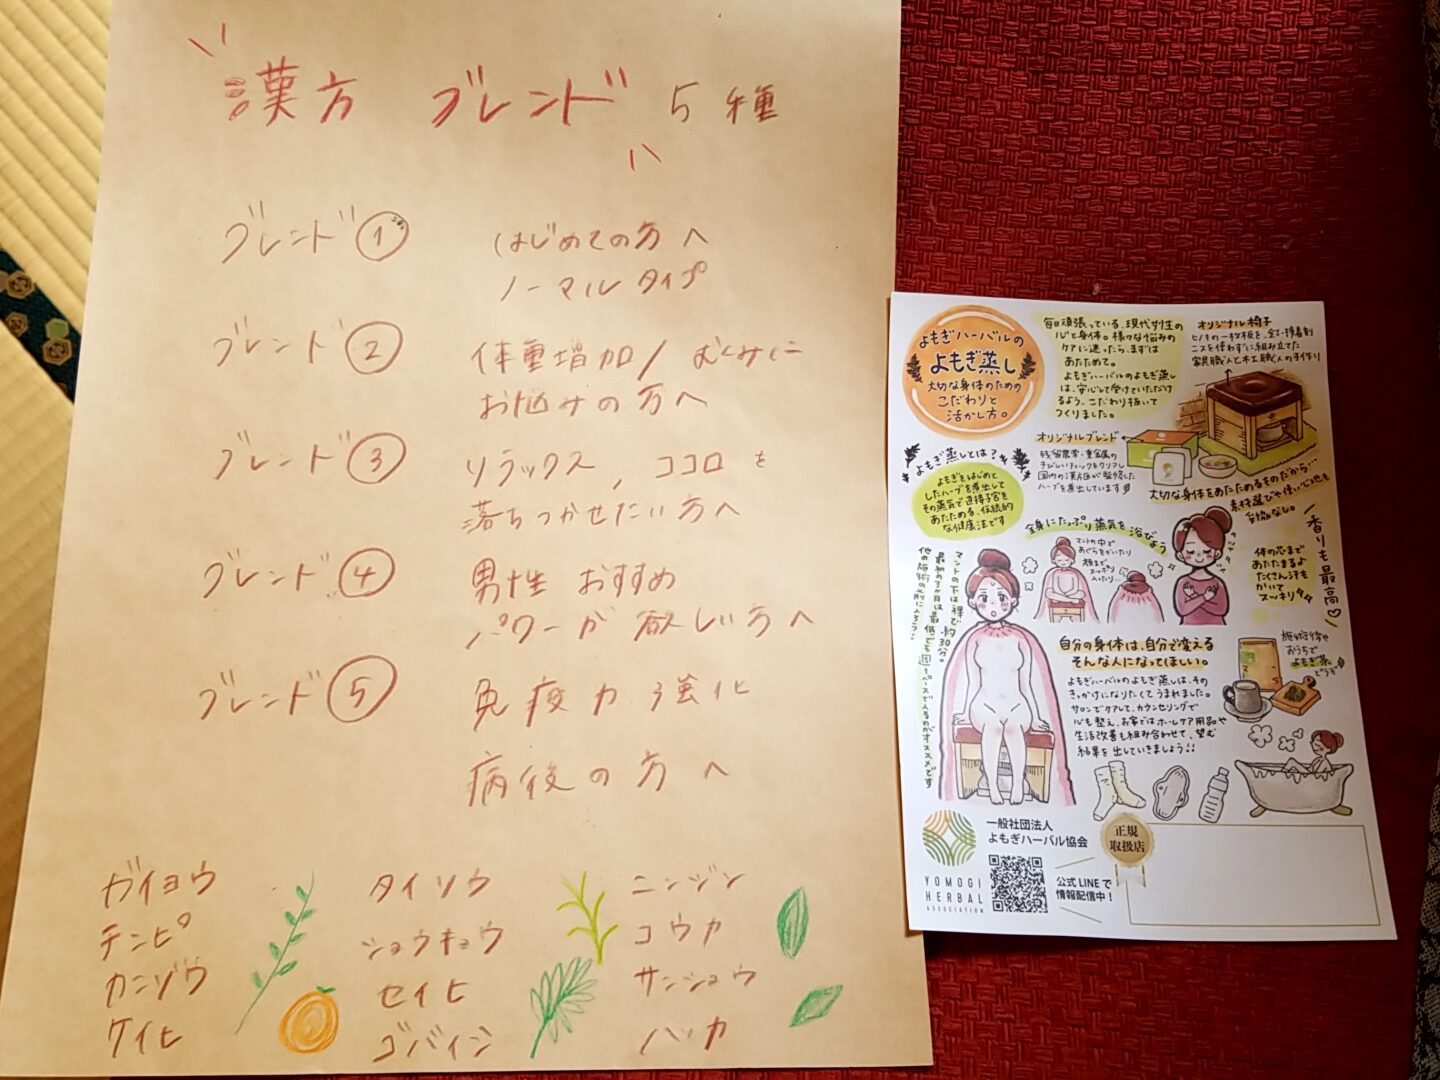 漢方 ブレンド 5種
ブレンド①
はじめての方へ
ノーマルタイプ
ブレンド②
体重増加/むくみに
お悩みの方へ
ブレンド③
リラックス、ココロを
落ちつかせたい方へ
ブレンド④
男性おすすめ
パワーが欲しい方へ
ブレンド⑤
免疫力強化
病後の方へ
ガイヨウ
チンピ
カンゾウ
ケイヒ
タイソウ
ショウキョウ
セイヒ
ゴバイシ
ニンジン
コウカ
サンショウ
ハッカ
よもぎハーバルの
よもぎ蒸し
大切な身体のための
こだわりと
活かし方。
毎日頑張っている、現代女性の
心と身体。様々な悩みの
ケアに迷ったら、まずは
あたためて。
よもぎハーバルのよもぎ蒸し
は、安心して受けていただけ
るよう、こだわり抜いて
つくりました。
オリジナル椅子
ヒノキの一枚板を、全て接着剤
ニスを使わずに組み立てた
家具職人と木工職人の手作り
オリジナルブレンド
残留農薬・重金属の
きびしいチェックをクリアし
国内の漢方医が監修した
ハーブを煮出しています
よもぎ蒸しとは?
よもぎをはじめと
したハーブを煮出して
その蒸気で直接子宮を
あたためる、伝統的
な健康法です
大切な身体をあたためるものだから…
素材選びや使い心地も
妥協なし。
香りも最高♡
全身にたっぷり蒸気を浴びよう
マントの中で
あぐらをかいたり
顔まで
スッポリ
入ったり…
体の芯まで
あたたまるよ
たくさん汗も
かいて
スッキリ
マントの下は裸で約30分。
最初の3ヶ月は最低でも週1ペースで入るのがオススメです
他の施術の前に入ろう!
自分の身体は、自分で変える
そんな人になってほしい。
よもぎハーバルのよもぎ蒸しは、その
きっかけになりたくてうまれました。
サロンでケアして、カウンセリングで
心も整え、お家ではホームケア用品や
生活改善も組み合わせて、望む
結果を出していきましょう!!
施術後や
おうちで
よもぎ茶
どうぞ
一般社団法人
よもぎハーバル協会
YOMOGI
HERBAL
ASSOCIATION
公式LINEで
情報配信中!
正規
取扱店